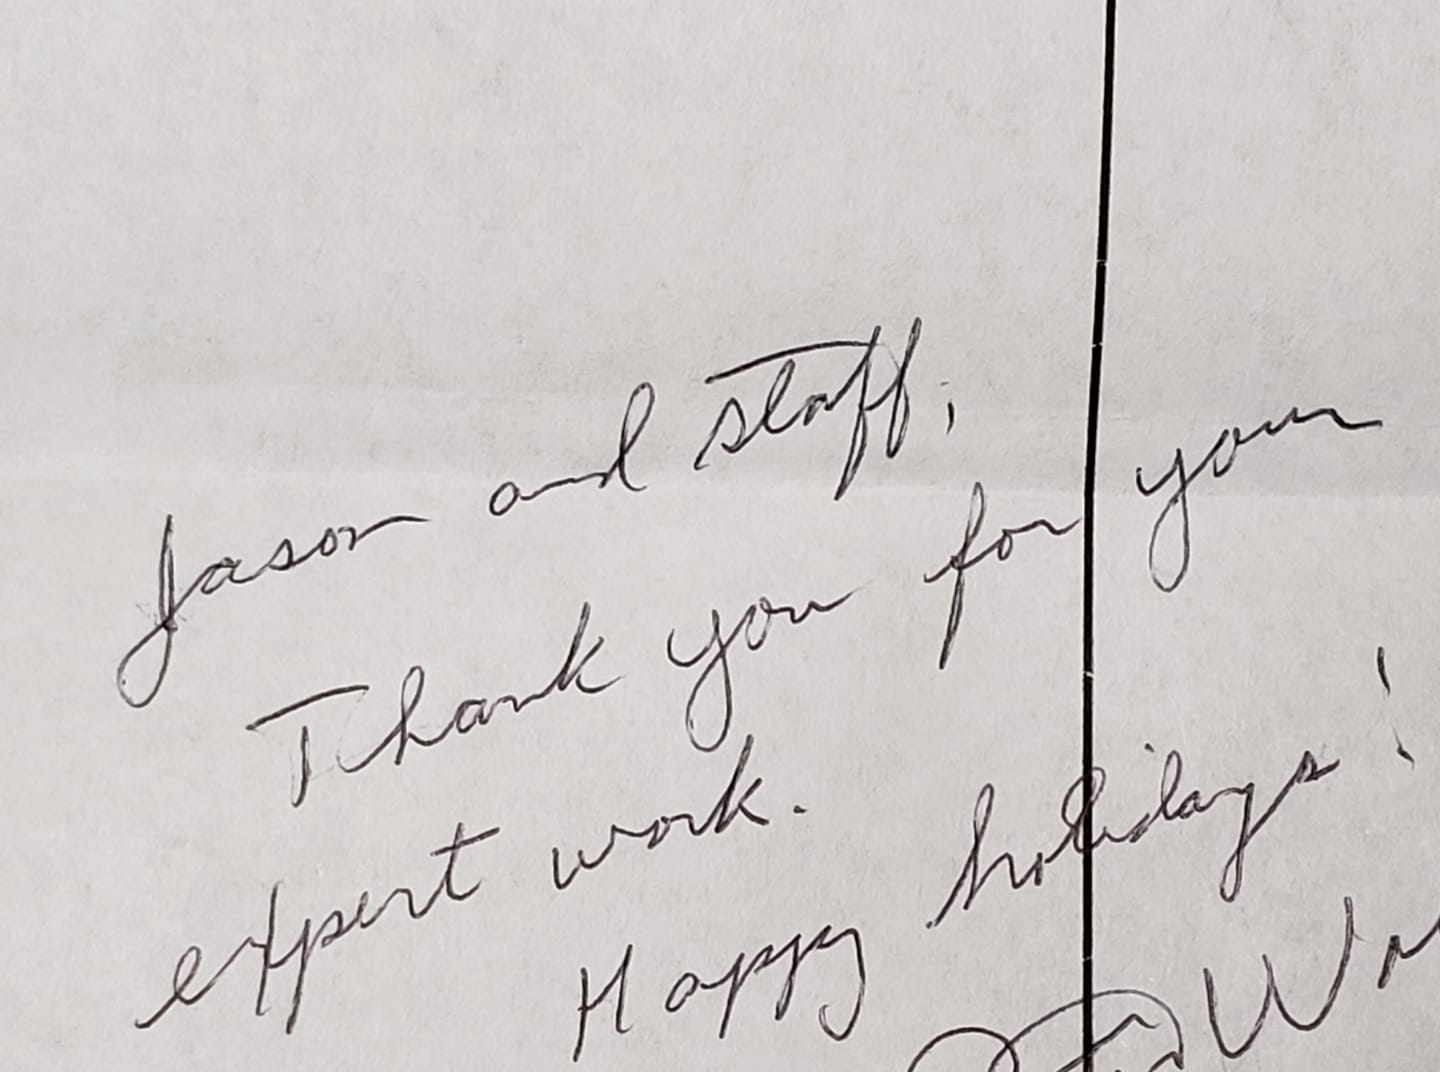 Jason and staff,
Thank you for your
expert work.
Happy holidays!